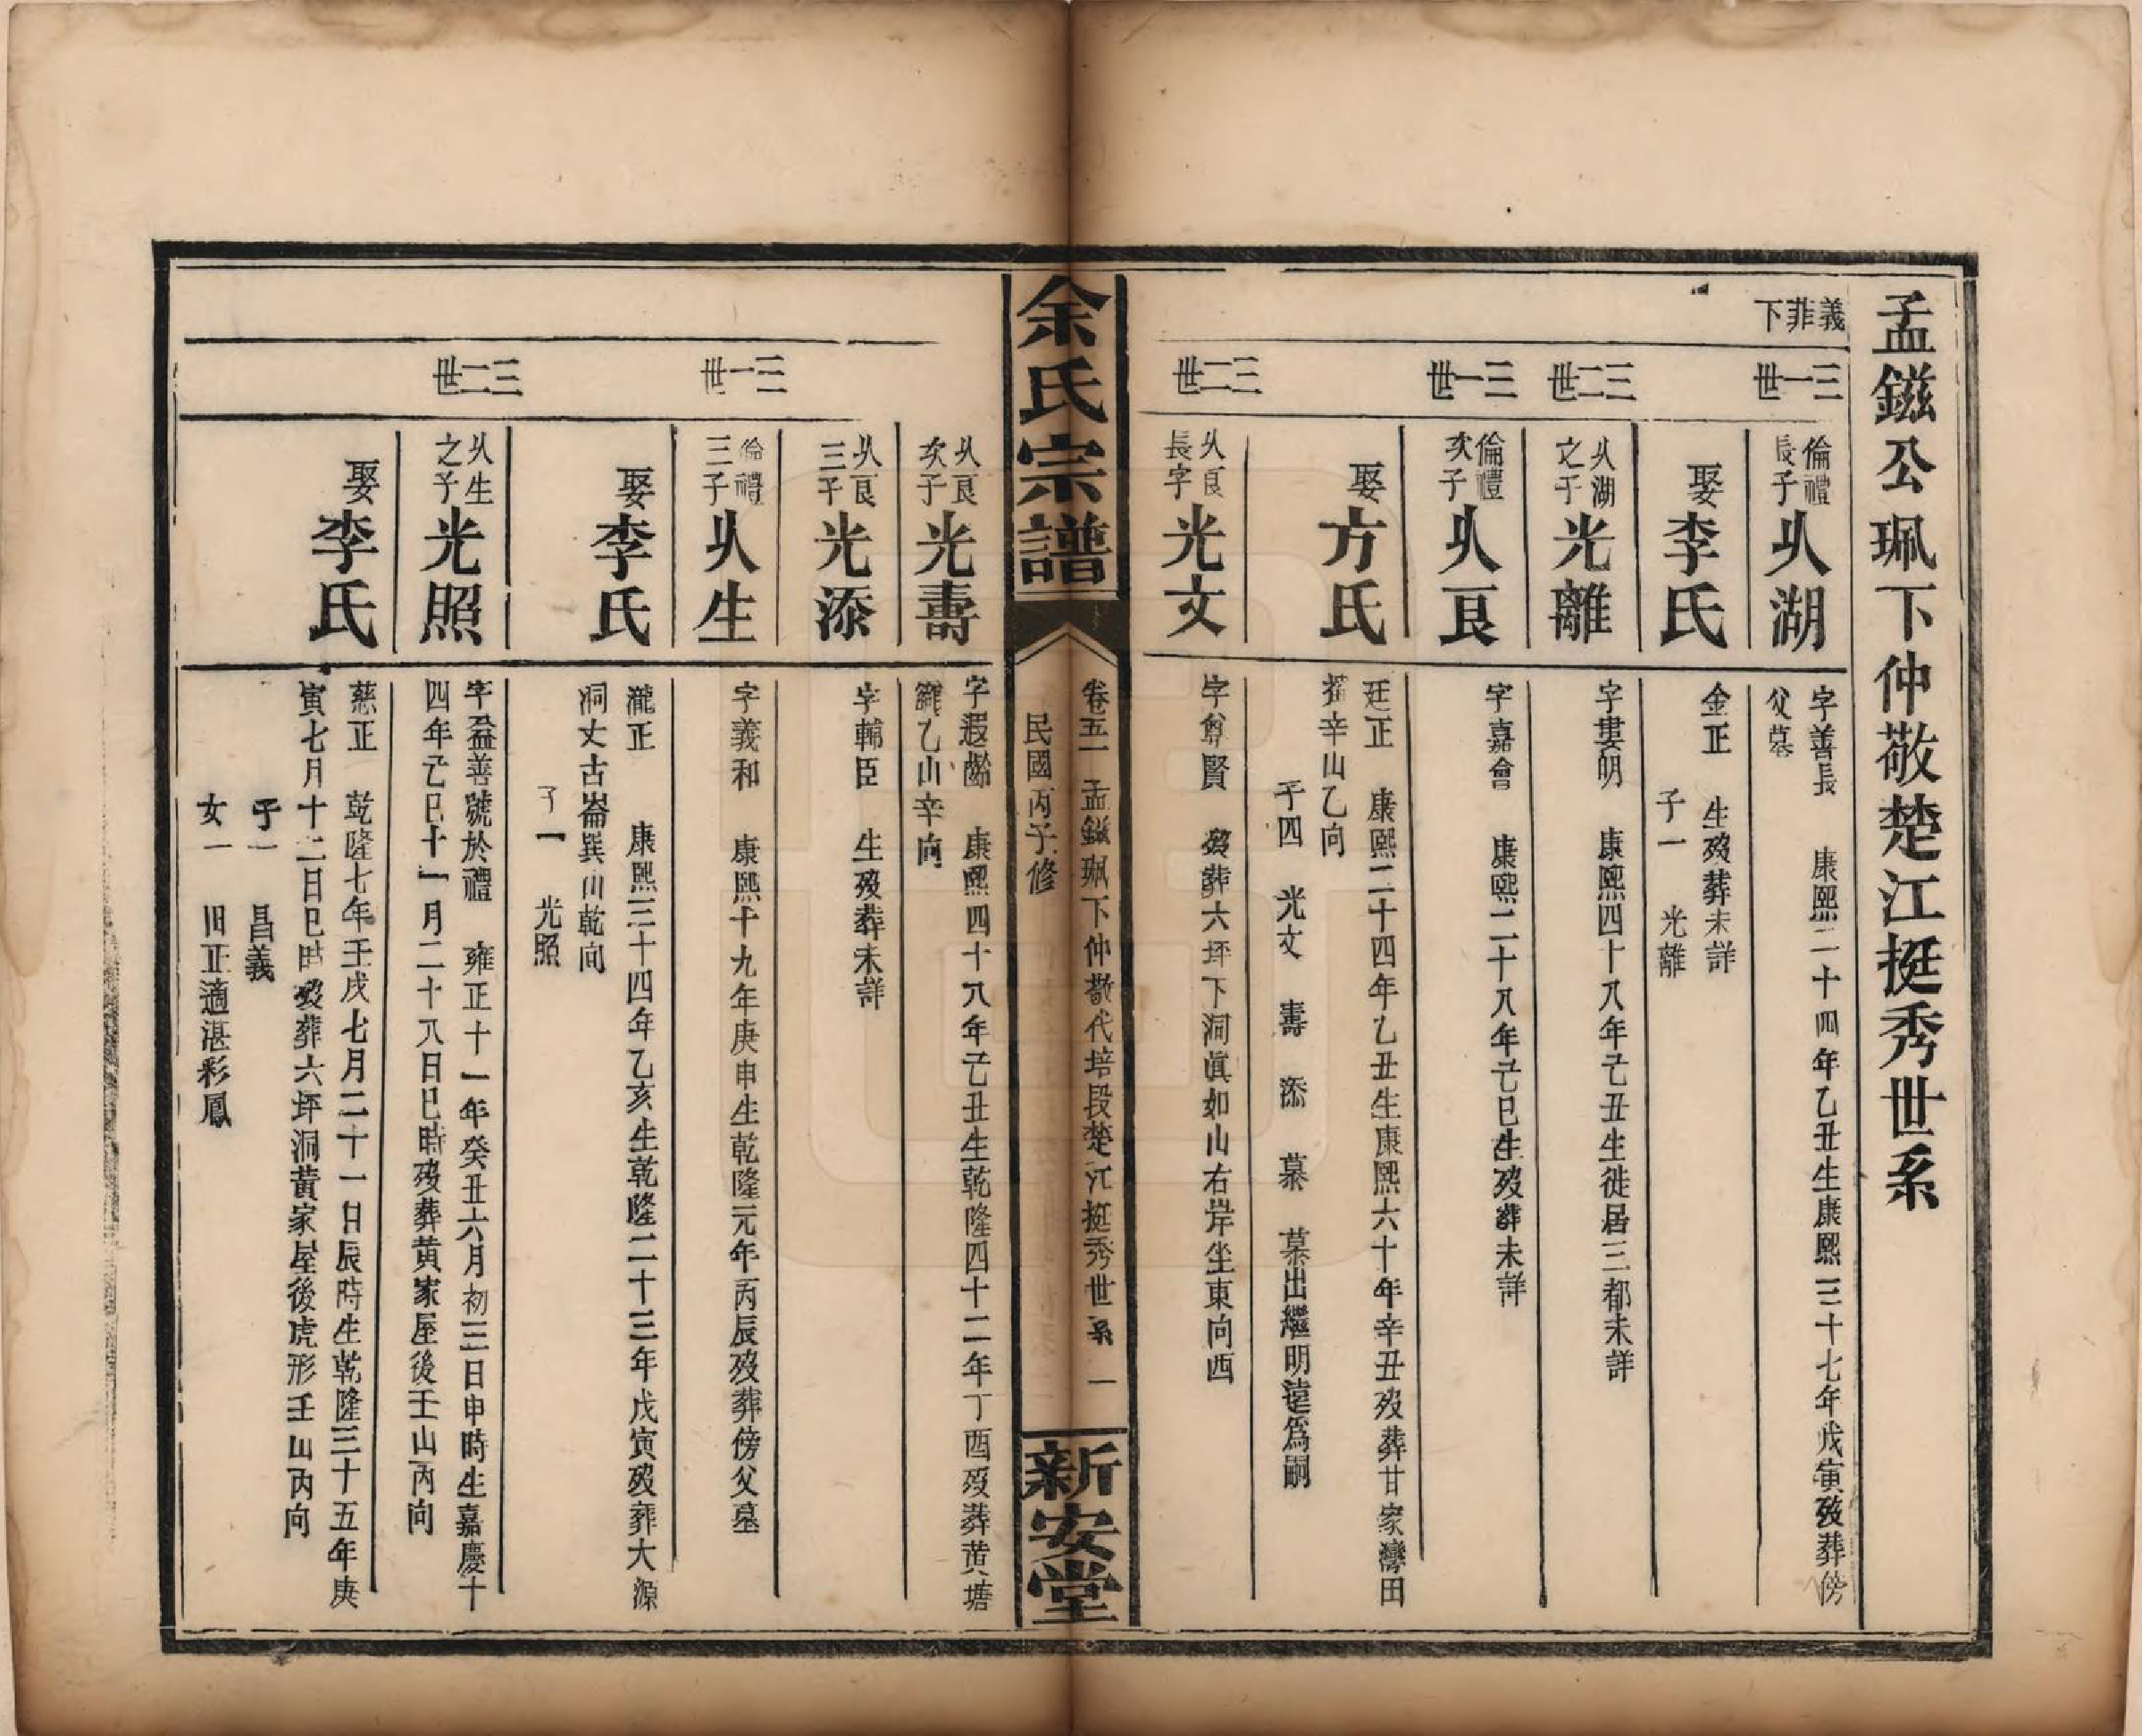 孟鎡公珮下仲敬楚江挺秀世系
義菲下
三一世
倫禮長子
㕥湖
字善長 康熙二十四年乙丑生康熙三十七年戊寅歿葬傍
父墓
娶
李氏
金正 生歿葬未詳
子一 光離
三二世
㕥湖之子
光離
字婁明 康熙四十八年己丑生徙居三都未詳
三一世
倫禮次子
㕥良
字嘉會 康熙二十八年己巳生歿葬未詳
娶
方氏
廷正 康熙二十四年乙丑生康熙六十年辛丑歿葬甘家灣田
辛山乙向
子四 光文 壽 添 慕 慕出繼明遠爲嗣
三二世
㕥良長字
光文
字尊賢 歿葬六坪下洞眞如山右岸坐東向西
余氏宗譜
卷五一 孟鎡珮下仲敬代培段楚江挺秀世系 一
民國丙子修
新安堂
㕥良次子
光壽
字遐齡 康熙四十八年己丑生乾隆四十二年丁酉歿葬黃塘
乙山辛向
㕥良三子
光添
字輔臣 生歿葬未詳
三一世
倫禮三子
㕥生
字義和 康熙十九年庚申生乾隆元年丙辰歿葬傍父墓
娶
李氏
瀧正 康熙三十四年乙亥生乾隆二十三年戊寅歿葬大源
洞丈古崙巽山乾向
子一 光照
三二世
㕥生之子
光照
字益善號於禮 雍正十一年癸丑六月初三日申時生嘉慶十
四年己巳十一月二十八日巳時歿葬黃家屋後壬山丙向
娶
李氏
慈正 乾隆七年壬戌七月二十一日辰時生乾隆三十五年庚
寅七月十二日巳時歿葬六坪洞黃家屋後虎形壬山丙向
子一 昌義
女一 旧正適湛彩鳳